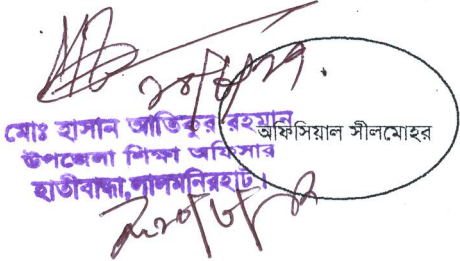 মোঃ হাসান আতিকুর রহমান
উপজেলা শিক্ষা অফিসার
হাতীবান্ধা, লালমনিরহাট।
অফিসিয়াল সীলমোহর